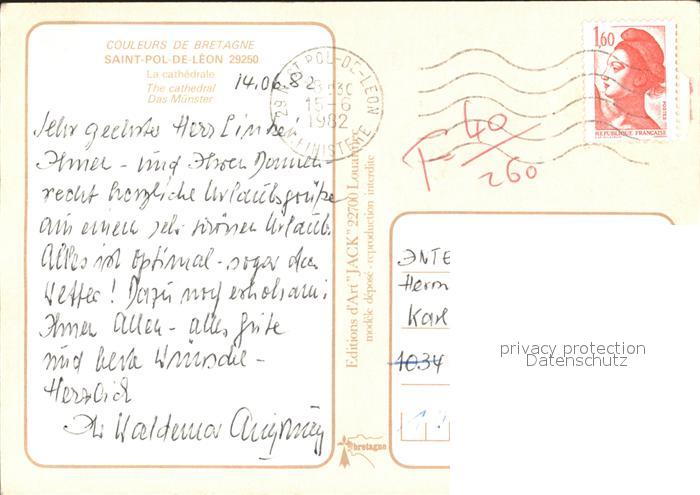 COULEURS DE BRETAGNE
SAINT-POL-DE-LÉON 29250
La cathédrale
The cathedral
Das Münster
14.06.82
29 ST POL-DE-LÉON
15-6
1982
FINISTERE
1,60
POSTES
REPUBLIQUE FRANÇAISE
T 40
260
Sehr geehrter Herr Linke!
Ihnen - und Ihren Damen
recht herzliche Urlaubsgrüße
aus einem sehr schönen Urlaub.
Alles ist optimal - sogar das
Wetter! Dazu noch erholsam!
Ihnen Allen - alles Gute
und beste Wünsche -
Herzlich
Ihr Waldemar
Editions d'Art "JACK" 22700 Louannec
modèle déposé - reproduction interdite
bretagne
INTE
Herrn
Karl
1034
privacy protection
Datenschutz